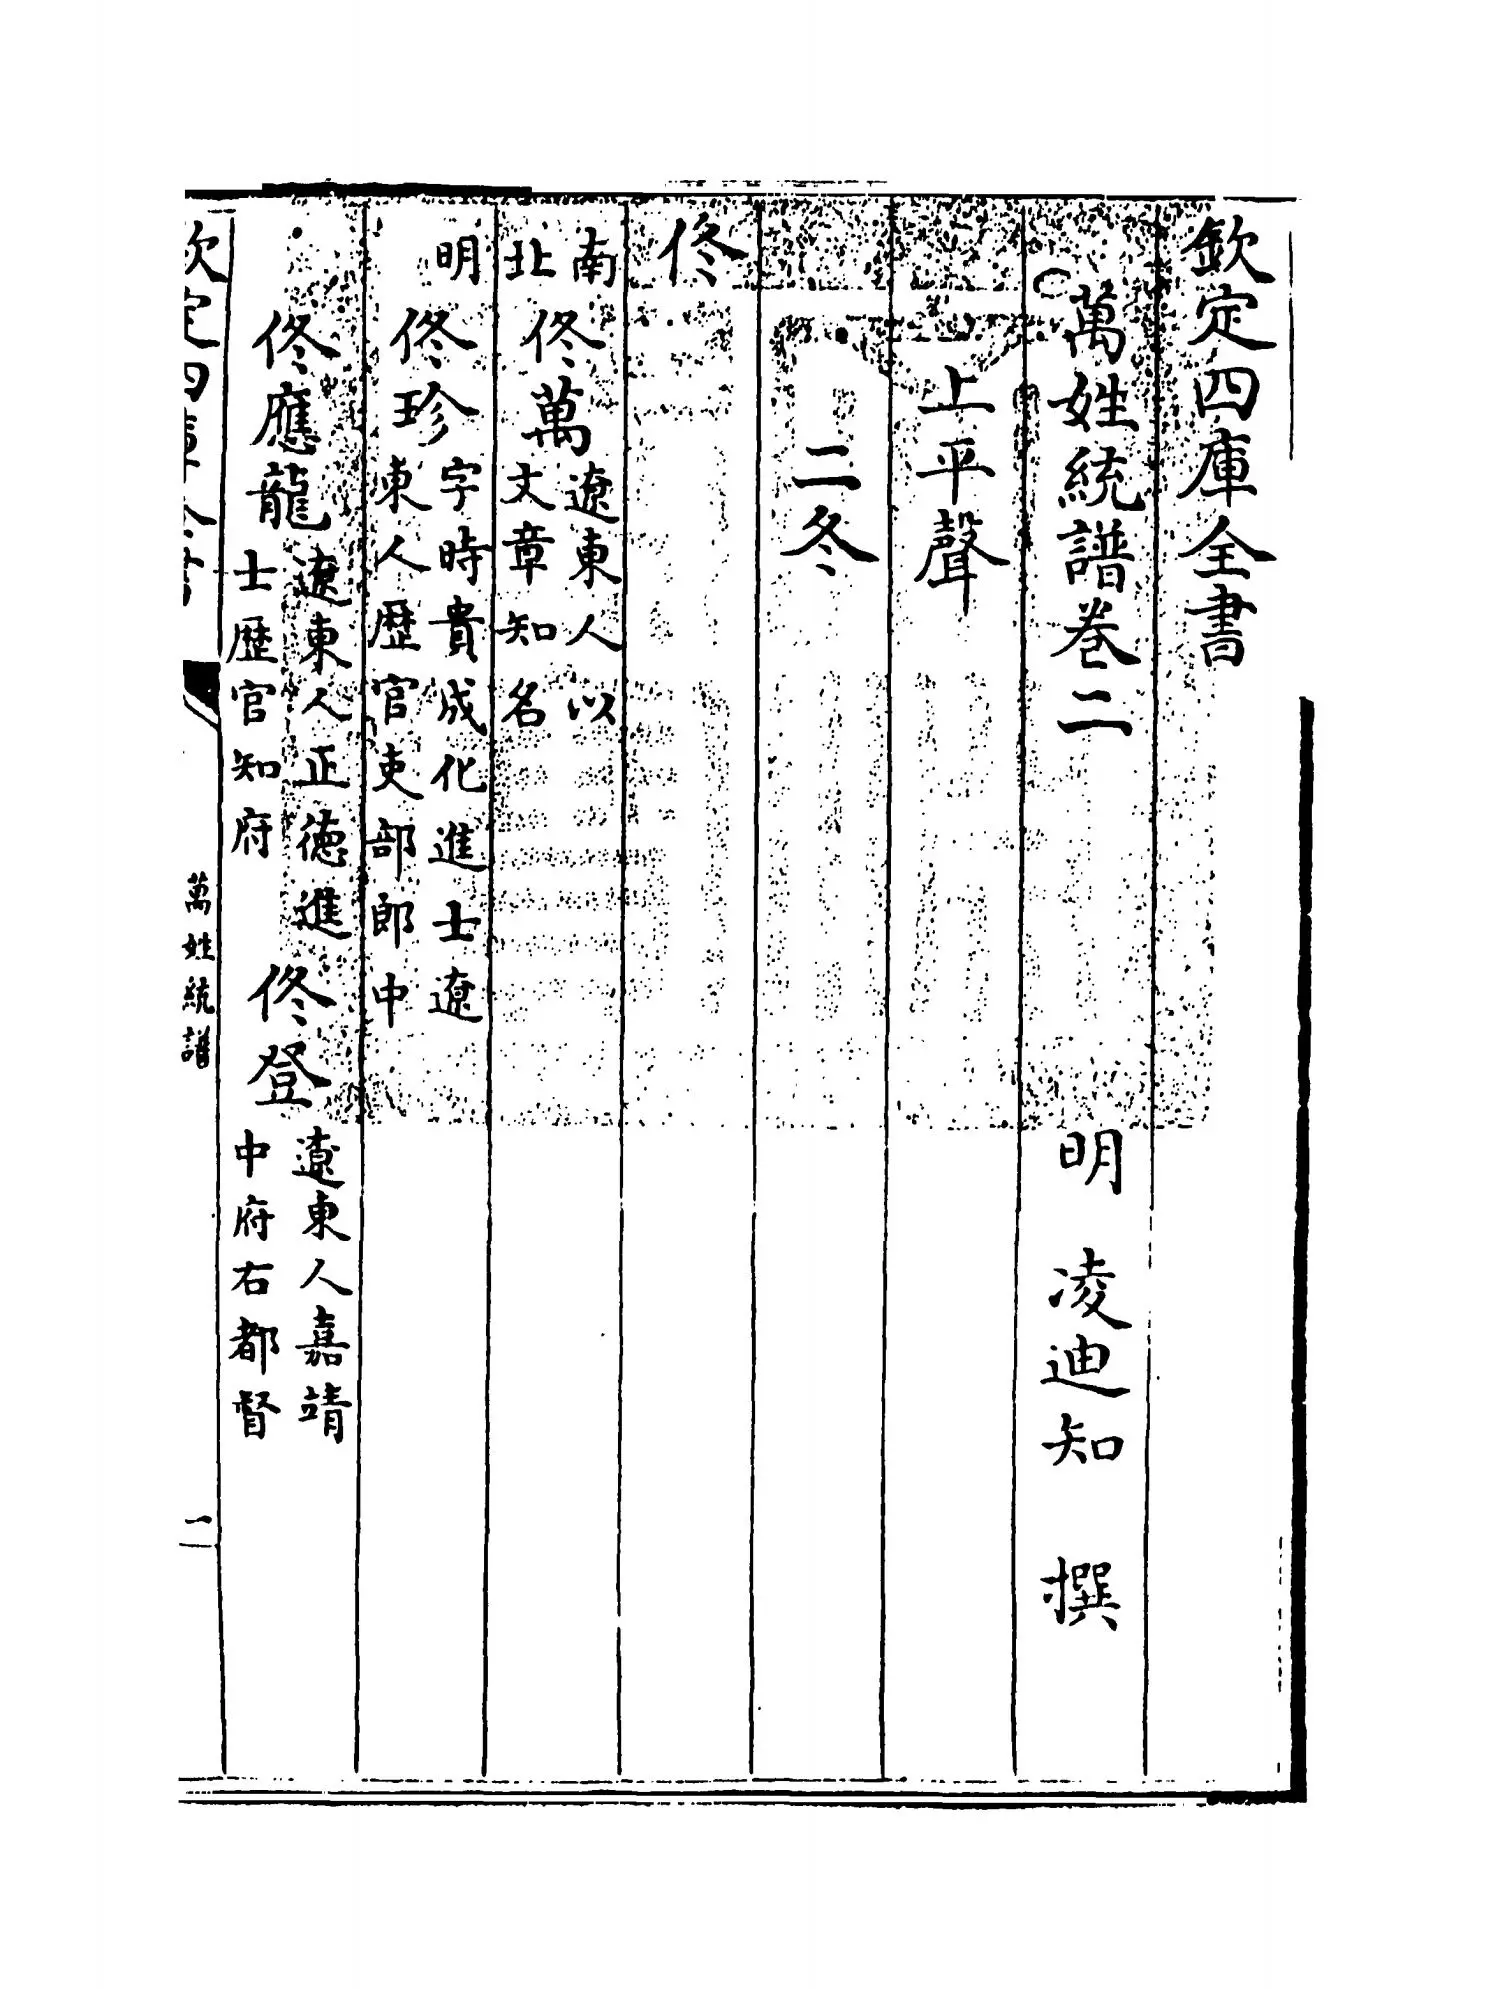 欽定四庫全書
萬姓統譜卷二
明 凌迪知 撰
上平聲
二冬
佟
南北 佟萬 遼東人以文章知名
明 佟珍 字時貴成化進士遼東人歴官吏部郎中
佟應龍 遼東人正德進士歴官知府 佟登 遼東人嘉靖中府右都督
欽定四庫全書
萬姓統譜
一